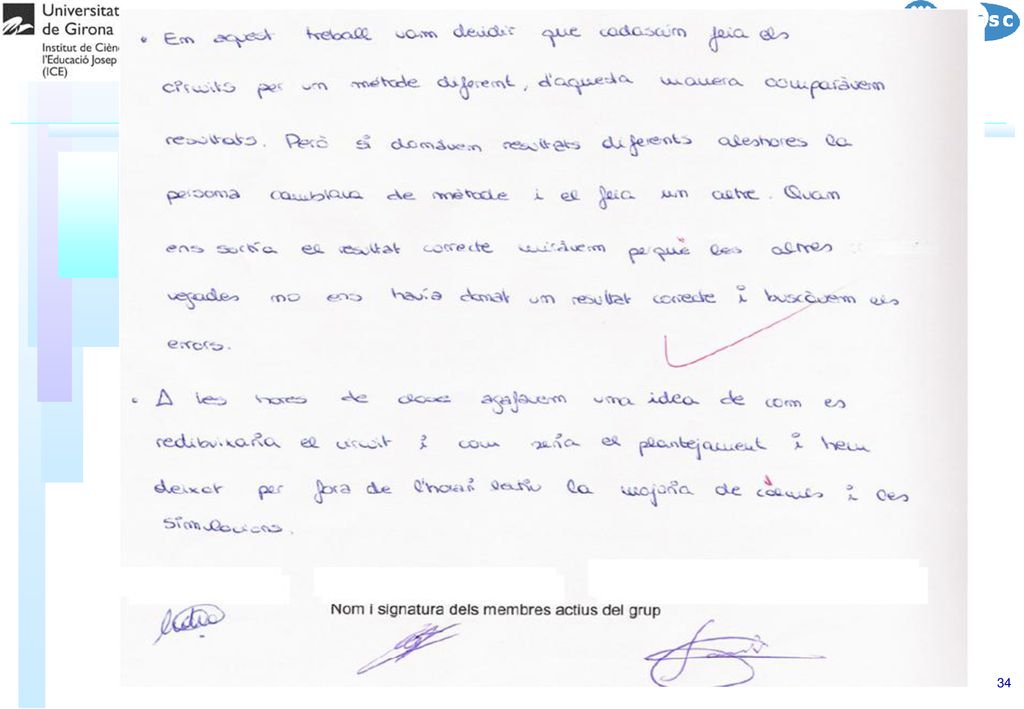 Universitat
de Girona
Institut de Cièn
l'Educació Josep
(ICE)
SC
• Em aquest treball vam decidir que cadascúm feia els
circuits per un mètode diferent, d'aquesta manera comparàvem
resultats. Però si domàvem resultats diferents aleshores la
persona cambiava de mètode i el feia un altre. Quan
ens sortía el resultat correcte miràvem perquè les altres
vegades no ens havia donat un resultat correcte i buscàvem els
errors.
• A les hores de classe agafavem una idea de com es
redibuixaria el circuit i com seria el plantejament i hem
deixat per fora de l'horari lectiu la majoria de càlculs i les
simulacions.
Nom i signatura dels membres actius del grup
34